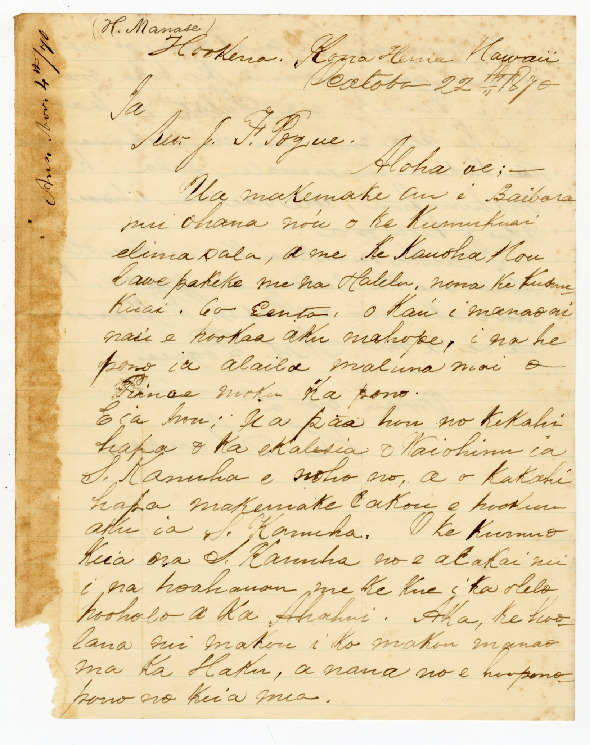 (H. Manase)
Hookena. Kona Hema Hawaii
October 22 1870
Ia
Rev. J. F. Pogue.
Aloha oe; —
Ua makemake au i Baibara
nui ohana no'u o ke kumukuai
elima dala, a me ke Kauoha Hou
lawe pakeke me na Halelu, nona ke kumu
kuai. 60 Centa, o ka'u i manao ai
naii e hookaa aku mahope, i na he
pono ia alaila maluna mai o
moku ka pono.
Eia hou; Ua paa hou no kekahi
hapa o ka ekalesia o Waiohinu ia
S. Kamuha e noho no, a o kakahi
hapa makemake lakou e hookuu
aku ia S. Kamuha. O ke kumu
keia ma S. Kamuha no e alakai nui
i na hoahanau me ke kue i ka olelo
hooholo a ka Ahahui. Aka, ke hoo-
lana nui makou i ko makou manao
ma ka Haku, a nana no e hooponopono
pono no keia mea.
Ans. Nov. 4th/70